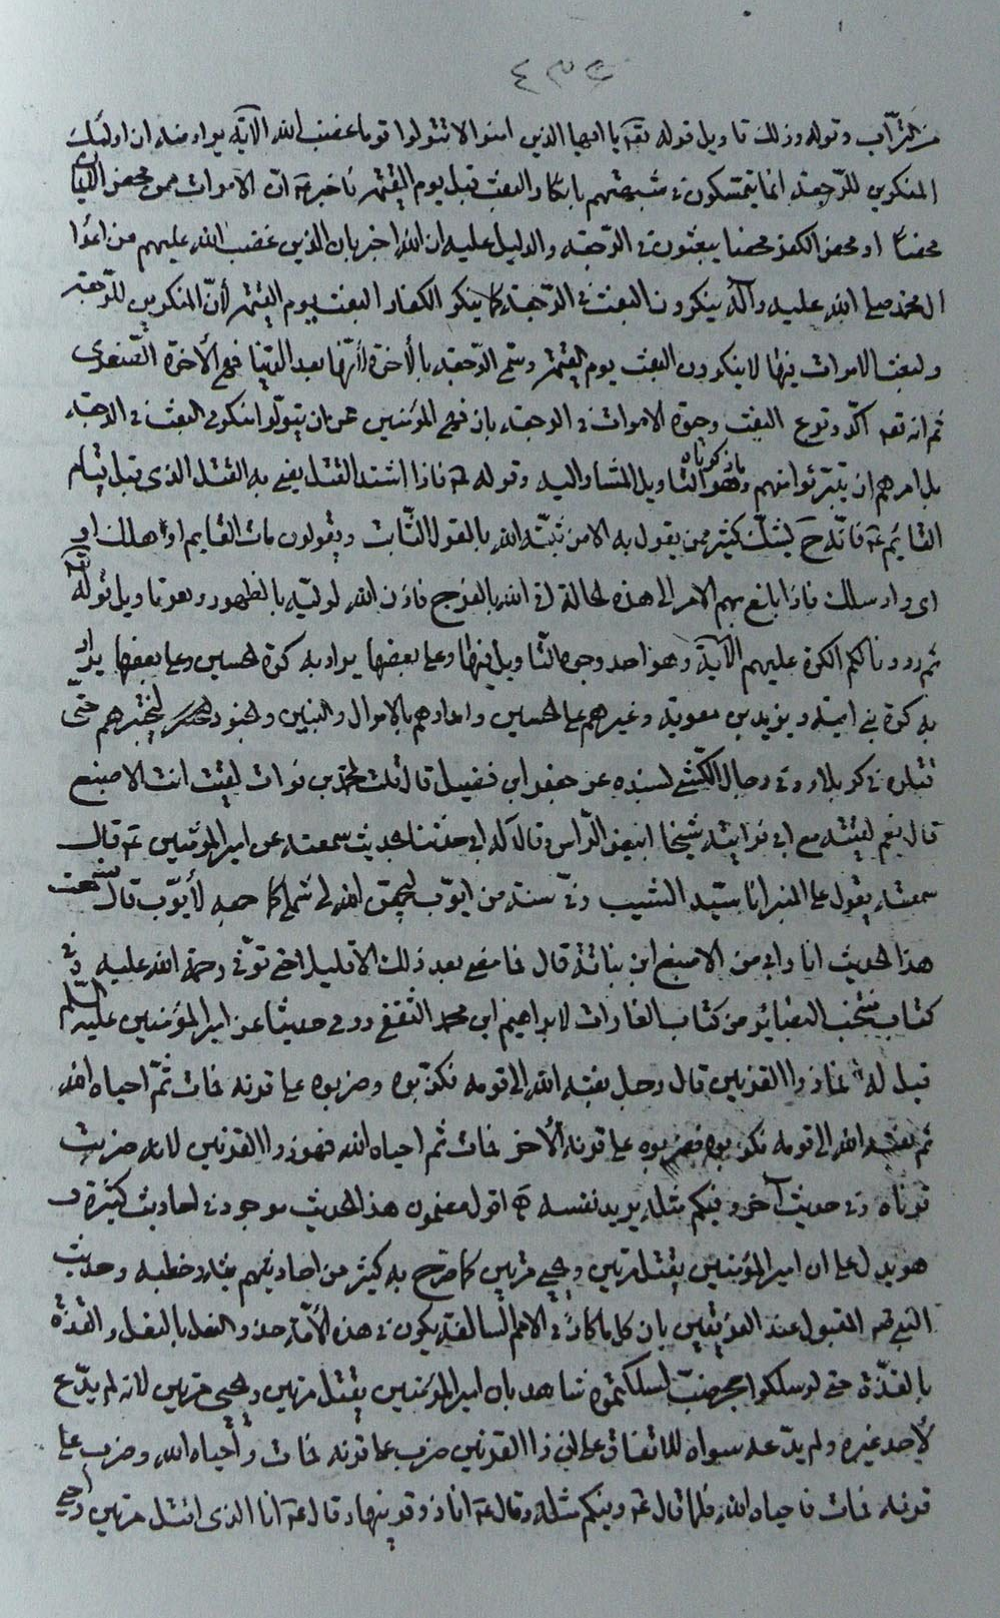 من التراب وقوله وذلك تاويل قوله تعه يا ايها الذين امنوا لا تتولوا قوما غضب الله الآية يراد منه ان اولئك
المنكرين للرجعة انما يتمسكون في شبهتهم بانكار البعث قبل يوم القيمة فاخبر ع ان الاموات ممن محض الايمان
محضا او محض الكفر محضا يبعثون في الرجعة والدليل عليه ان الله اخبر بان الذين غضب الله عليهم من اعداء
ال محمد صلى الله عليه وآله ينكرون البعث في الرجعة كما ينكر الكفار البعث يوم القيمة لأنّ المنكرين للرّجعة
ولبعث الاموات فيها لا ينكرون البعث يوم القيمة وسمى الرّجعة بالأخرة لأنّها بعد الدنيا فهى الأخرة الصّغرى
ثم انه تعه اكّد وقوع البعث وحيوة الاموات في الرجعة بان نهى المؤمنين عن ان يتولّوا منكرى البعث في الرجعة
بل امرهم ان يتبرّئوا منهم وما ذكرناه هو التاويل المشار اليه وقوله ع فاذا اشتد القتل يعنى به القتل الذى قبل قيام
القايم ع فانّه ح يشكّ كثير ممن يقول به الا من ثبّته الله بالقول الثّابت ويقولون مات القايم او هلك او
اى واد سلك فاذا بلغ بهم الامر الى هذه الحالة اتى الله بالفرج فاذن الله لوليّه بالظهور وهو تاويل قوله تعه
ثم رددنا لكم الكرة عليهم الآية وهو احد وجوه التاويل فيها وعلى بعضها يراد به كرة الحسين وعلى بعضها يراد
به كرة بنى اميّة ويزيد بن معوية وغيرهم على الحسين وامدادهم بالاموال والبنين والجنود ليختبرهم حتّى
قتلوه في كربلا وفي رجال الكشّى بسنده عن جعفر ابن فضيل قال قلت لمحمد بن فرات لقيت انت الاصبغ
قال نعم لقيته مع ابى فرايته شيخا ابيض الرّاس قال له ابى حدّثنا بحديث سمعته عن امير المؤمنين ع قال
سمعته يقول على المنبر انا سيّد الشيب وفىّ سنة من ايّوب ليجمعن الله لى شملى كما جمعه لأيّوب قال فسمعت
هذا الحديث انا وابى من الاصبغ ابن نباتة قال فما مضى بعد ذلك الا قليلا حتى توفّى رحمة الله عليه وفى
كتاب منتخب البصائر من كتاب الغارات لابراهيم ابن محمد الثقفى روى حديثا عن امير المؤمنين عليه السلم
قيل له فما ذو القرنين قال رجل بعثه الله الى قومه فكذّبوه وضربوه على قرنه فمات ثمّ احياه الله
ثم بعثه الله الى قومه فكذبوه فضربوه على قرنه الأخر فمات ثم احياه الله فهو ذو القرنين لانه ضربت
قرناه وفي حديث آخر وفيكم مثله يريد نفسه ع اقول مضمون هذا الحديث موجود في احاديث كثيرة و
هو يدل على ان امير المؤمنين يقتل مرّتين ويحيى مرتين كما صرّح به كثير من احاديثهم وخطبه وحديث
النبى ص المقبول عند الفريقين بان كل ما كان في الامم السالفة يكون في هذه الأمّة حذو النعل بالنعل والقذّة
بالقذّة حتى لو سلكوا جحر ضبّ لسلكتموه شاهد بان امير المؤمنين يقتل مرتين ويحيى مرتين لانه لم يدّع
لأحد غيره ولم يدّعه سواه للاتفاق على ان ذا القرنين ضرب على قرنه فمات واحياه الله وضرب على
قرنه فمات فاحياه الله فلما قال ع وفيكم مثله وقال ع انا ذو قرنيها وقال ع انا الذى اقتل مرتين واحيى